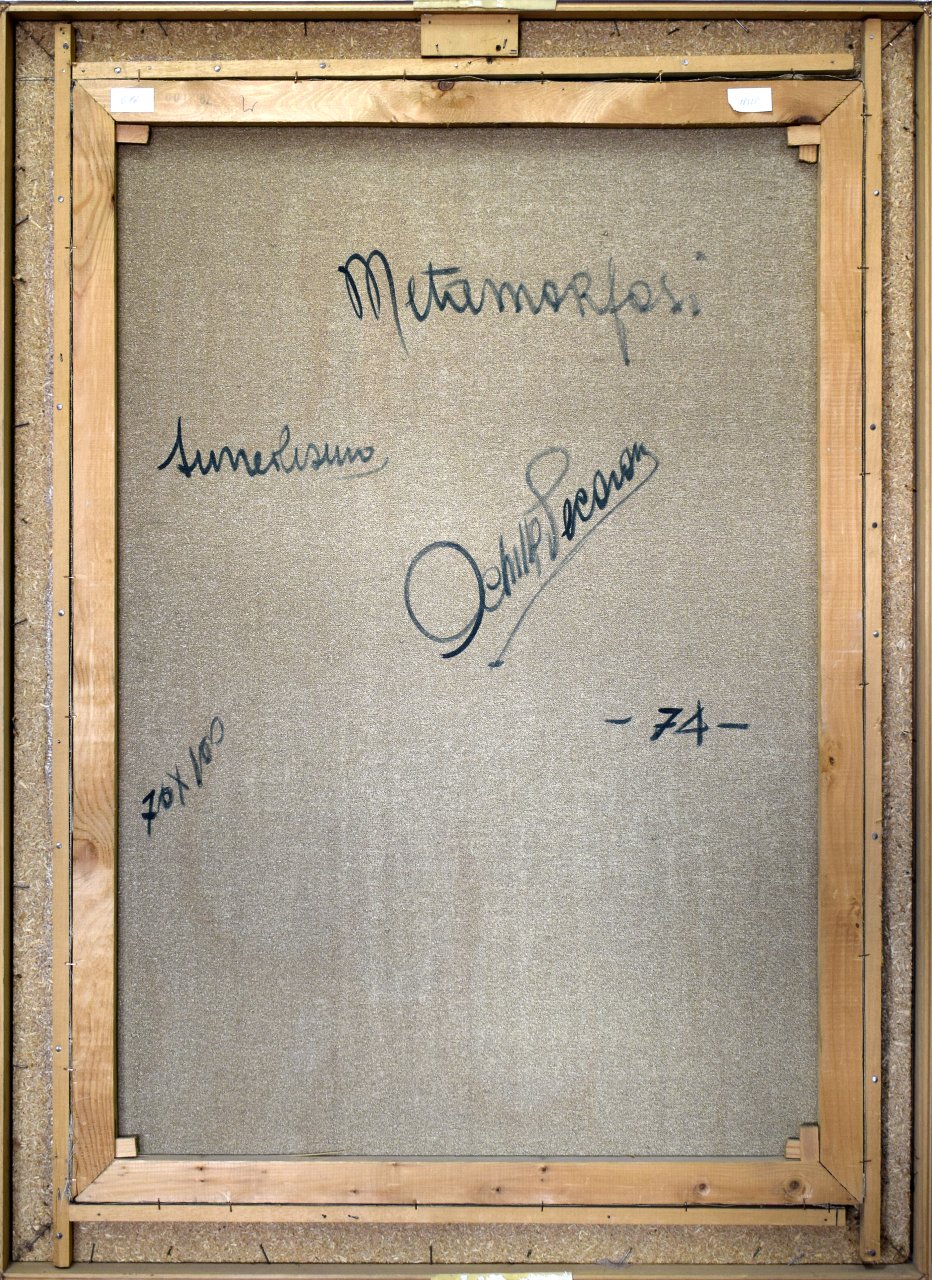 Metamorfosi
Surrealismo
Achille Pecoraro
- 74 -
70X100